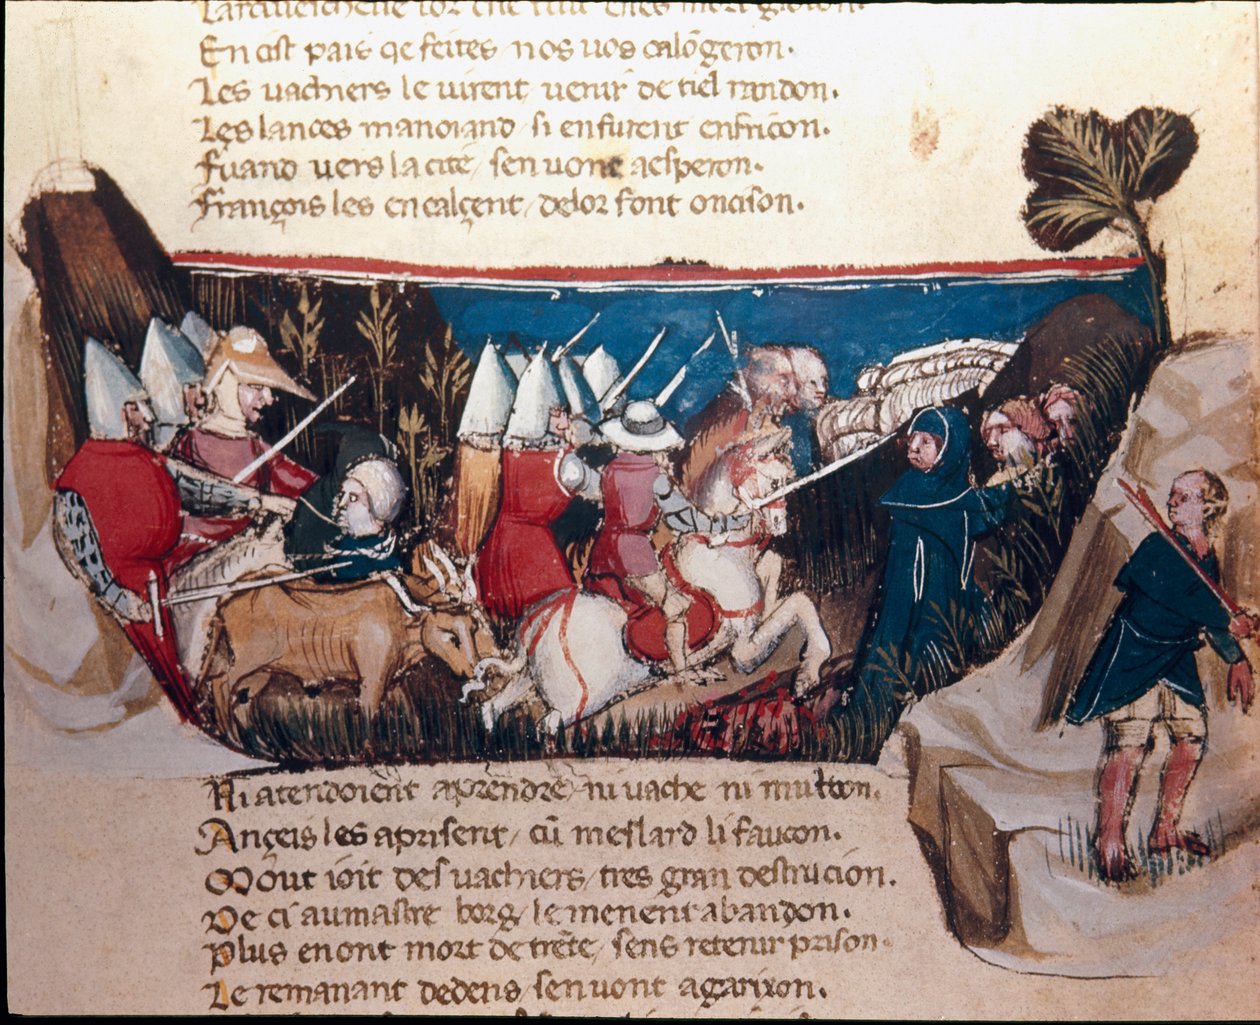 En cist païs qe feites nos vos calōgeron.
Les vachiers le virent venir de tiel randon.
Les lances manoiand / si en furent en friçon.
Fuand vers la cité / sen vont a esperon.
François les encalçent / de lor font oncison.
Ni atendoient a prendre / ni vache ni mutton.
Ançeis les aprisent / cū meslard li faucon.
Mout i oit des vachiers / tres gran destrucion.
De ci au mastre borg / le menent abandon.
Plus en ont mort de trēte / sens retenir prison.
Le remanant dedens / sen vont a garixon.